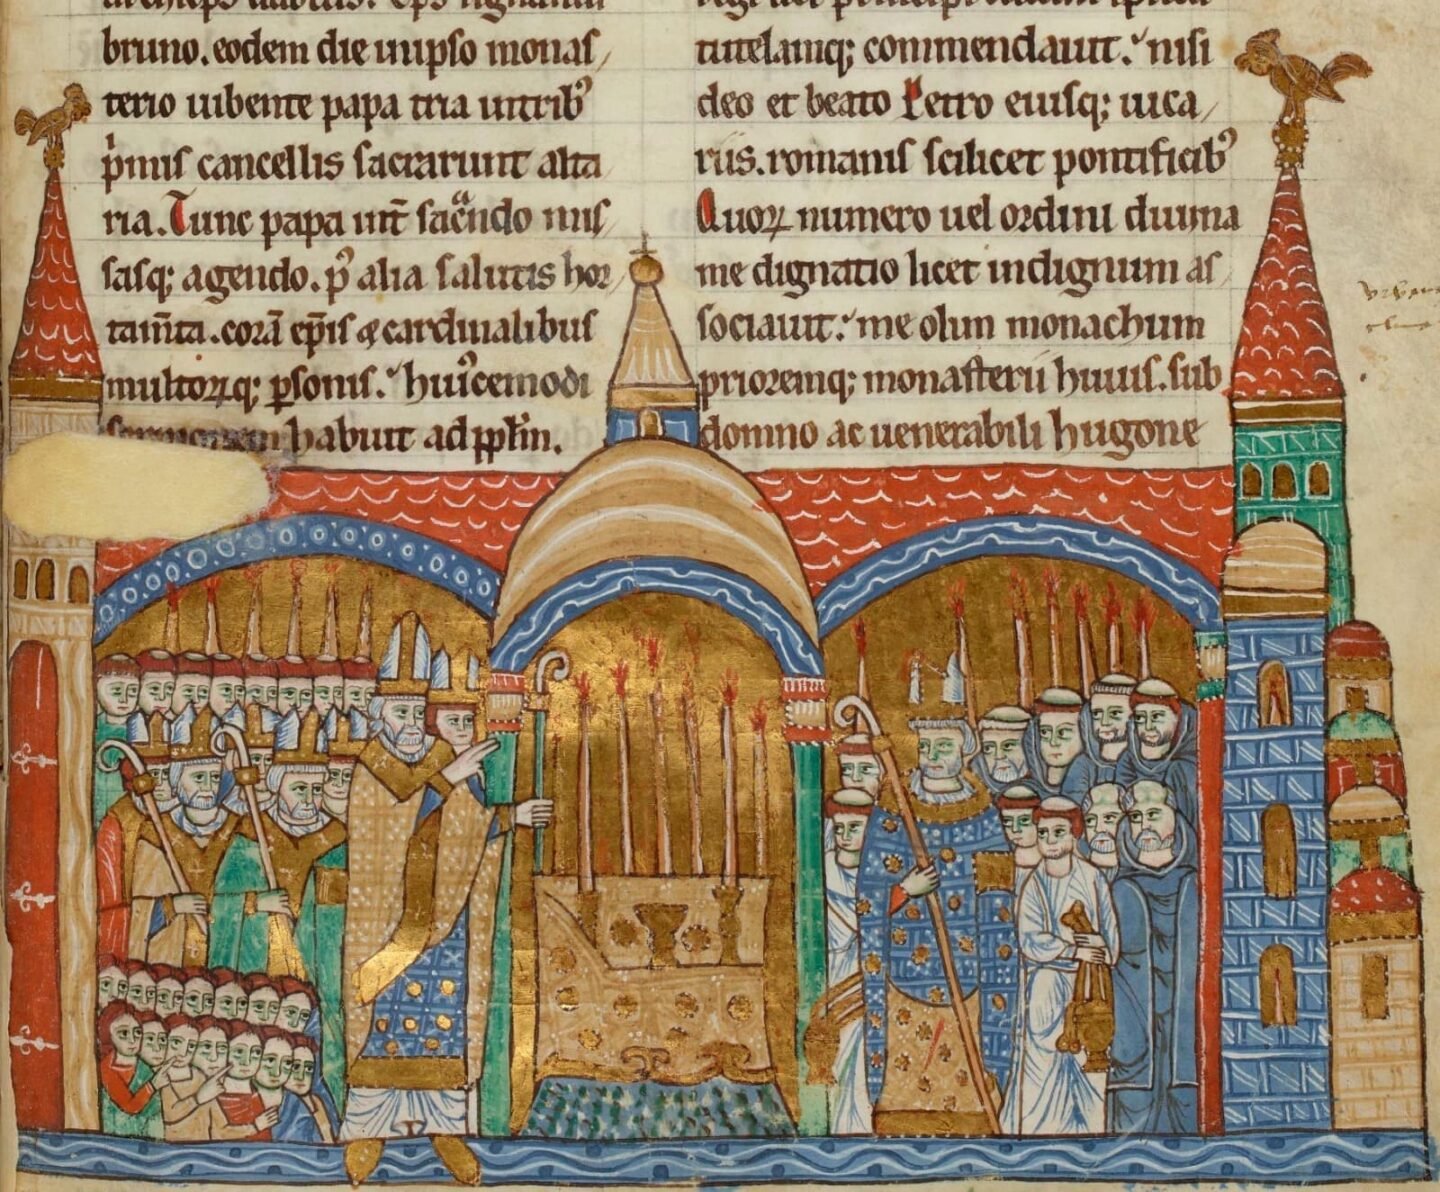 bruno. eodem die in ipso monaſ
terio iubente papa tria in tribꝰ
pͥmiſ cancelliſ ſacrarunt alta
ria. Tunc papa int̄ ſacͣndo miſ
ſaſq; agendo. p̄ alia ſalutiſ hor
tam̄ta. corā ep̄iſ ⁊ cardinalibuſ
multorꝝq; ꝑſoniſ. huiꝰcemodi
ſermonem habuit ad pp̄lm̄.
tutelamq; commendauit. niſi
deo et beato Petro eiuſq; uica
riiſ. romaniſ ſcilicet pontificibꝰ
Quoꝝ numero uel ordini diuina
me dignatio licet indignum aſ
ſociauit. me olim monachum
prioremq; monaſterii huiuſ. ſub
domno ac uenerabili hugone